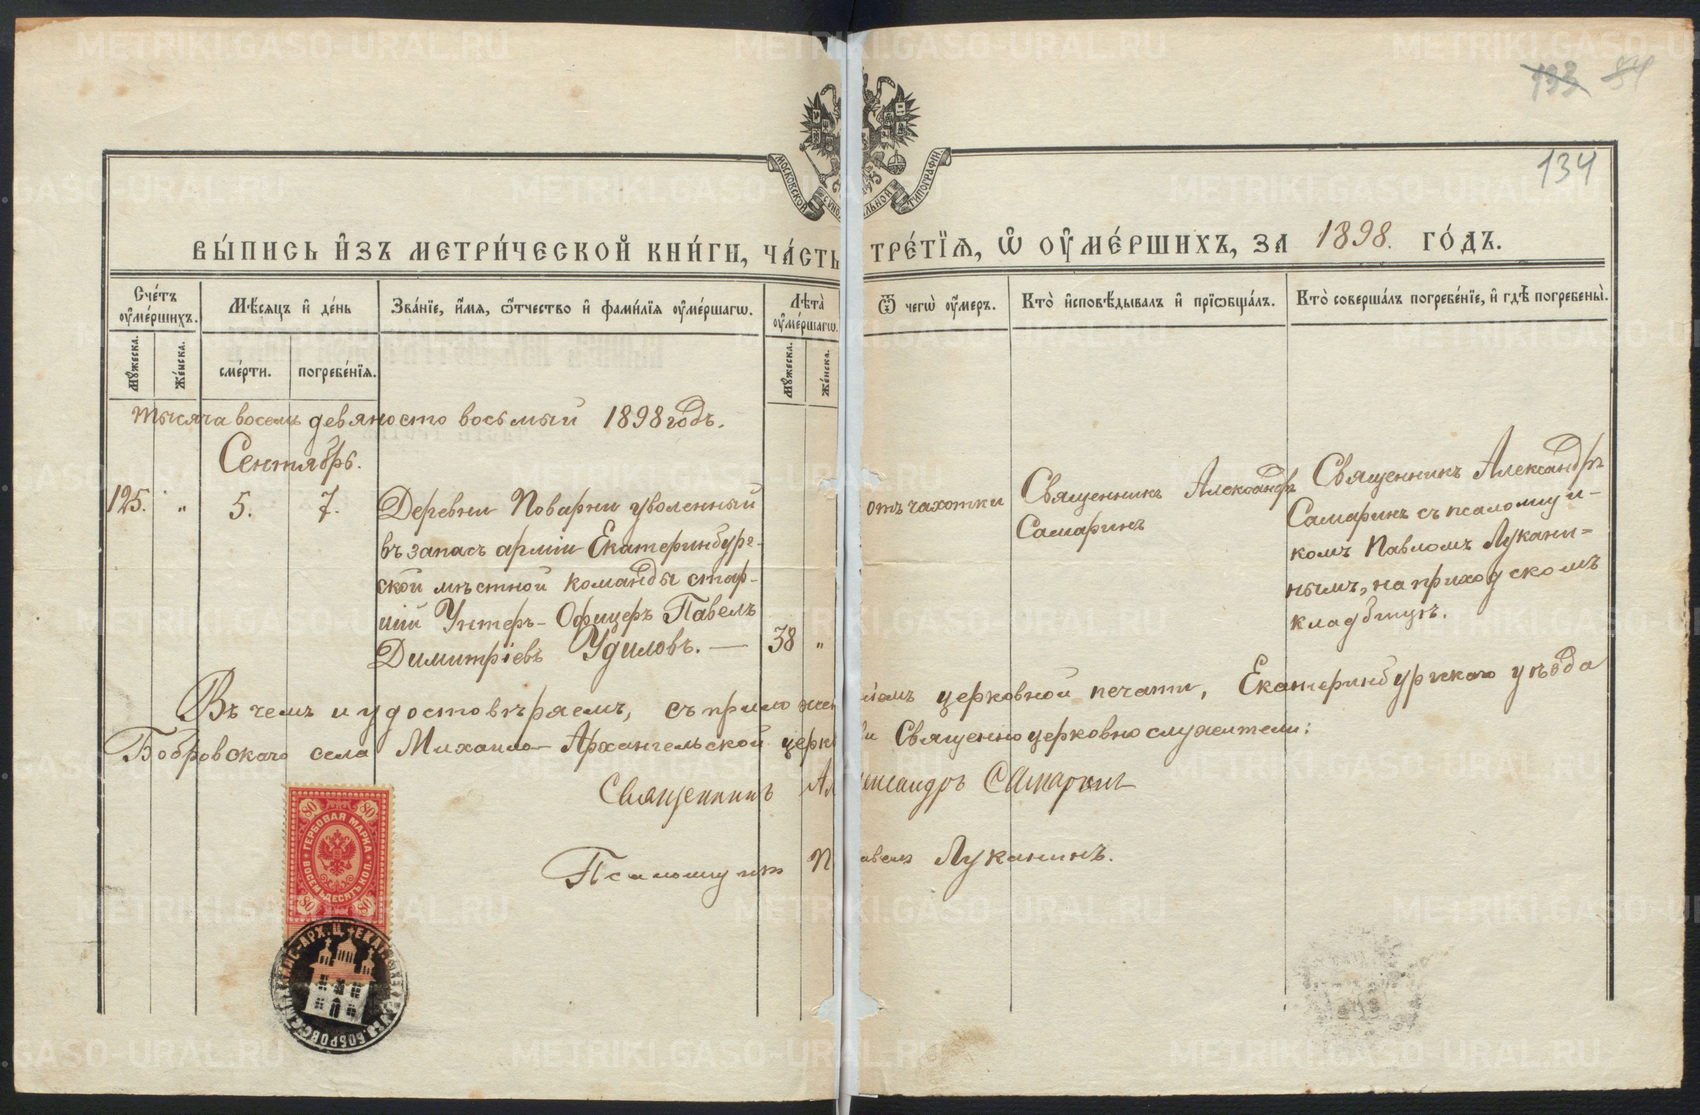 133 84
134
МОСКОВСКОЙ СѴНОДАЛЬНОЙ ТИПОГРАФІИ
ВЫ́ПИСЬ И҆ЗЪ МЕТРИ́ЧЕСКОЙ КНИ́ГИ, ЧА́СТЬ ТРЕ́ТІѦ, Ѡ҆ ОУ҆МЕ́РШИХЪ, ЗА 1898. ГО́ДЪ.
Сче́тъ оу҆ме́ршихъ.
Мѣ́сѧцъ и҆ де́нь
Зва́нїе, и҆́мѧ, ѻ҆́тчество и҆ фами́лїѧ оу҆ме́ршагѡ.
Лѣ́та оу҆ме́ршагѡ.
Ѿ чегѡ̀ оу҆́меръ.
Кто̀ и҆сповѣ́дывалъ и҆ прїѡбща́лъ.
Кто̀ соверша́лъ погребе́нїе, и҆ гдѣ̀ погребены̀.
Мꙋ́жеска.
Же́нска.
сме́рти.
погребе́нїѧ.
Мꙋ́жеска.
Же́нска.
тысяча восемь девяносто восьмый 1898 годъ.
Сентябрь.
125. „ 5. 7.
Деревни Поварни уволенный
въ запасъ арміи Екатеринбург-
ской мѣстной команды стар-
шій Унтеръ-Офицеръ Павелъ
Димитріевъ Удиловъ. — 38 „
отъ чахотки
Священникъ Александръ
Самаринъ
Священникъ Александръ
Самаринъ съ псаломщи-
комъ Павломъ Лукани-
нымъ, на приходскомъ
кладбищѣ.
Въ чемъ и удостовѣряемъ, съ приложеніемъ церковной печати, Екатеринбургскаго уѣзда
Бобровскаго села Михаило-Архангельской церкви Священноцерковнослужители:
Священникъ Александръ Самаринъ
Псаломщикъ Павелъ Луканинъ.
80 80
ГЕРБОВАЯ МАРКА
ВОСЕМЬДЕСЯТЪ КОП.
80 80